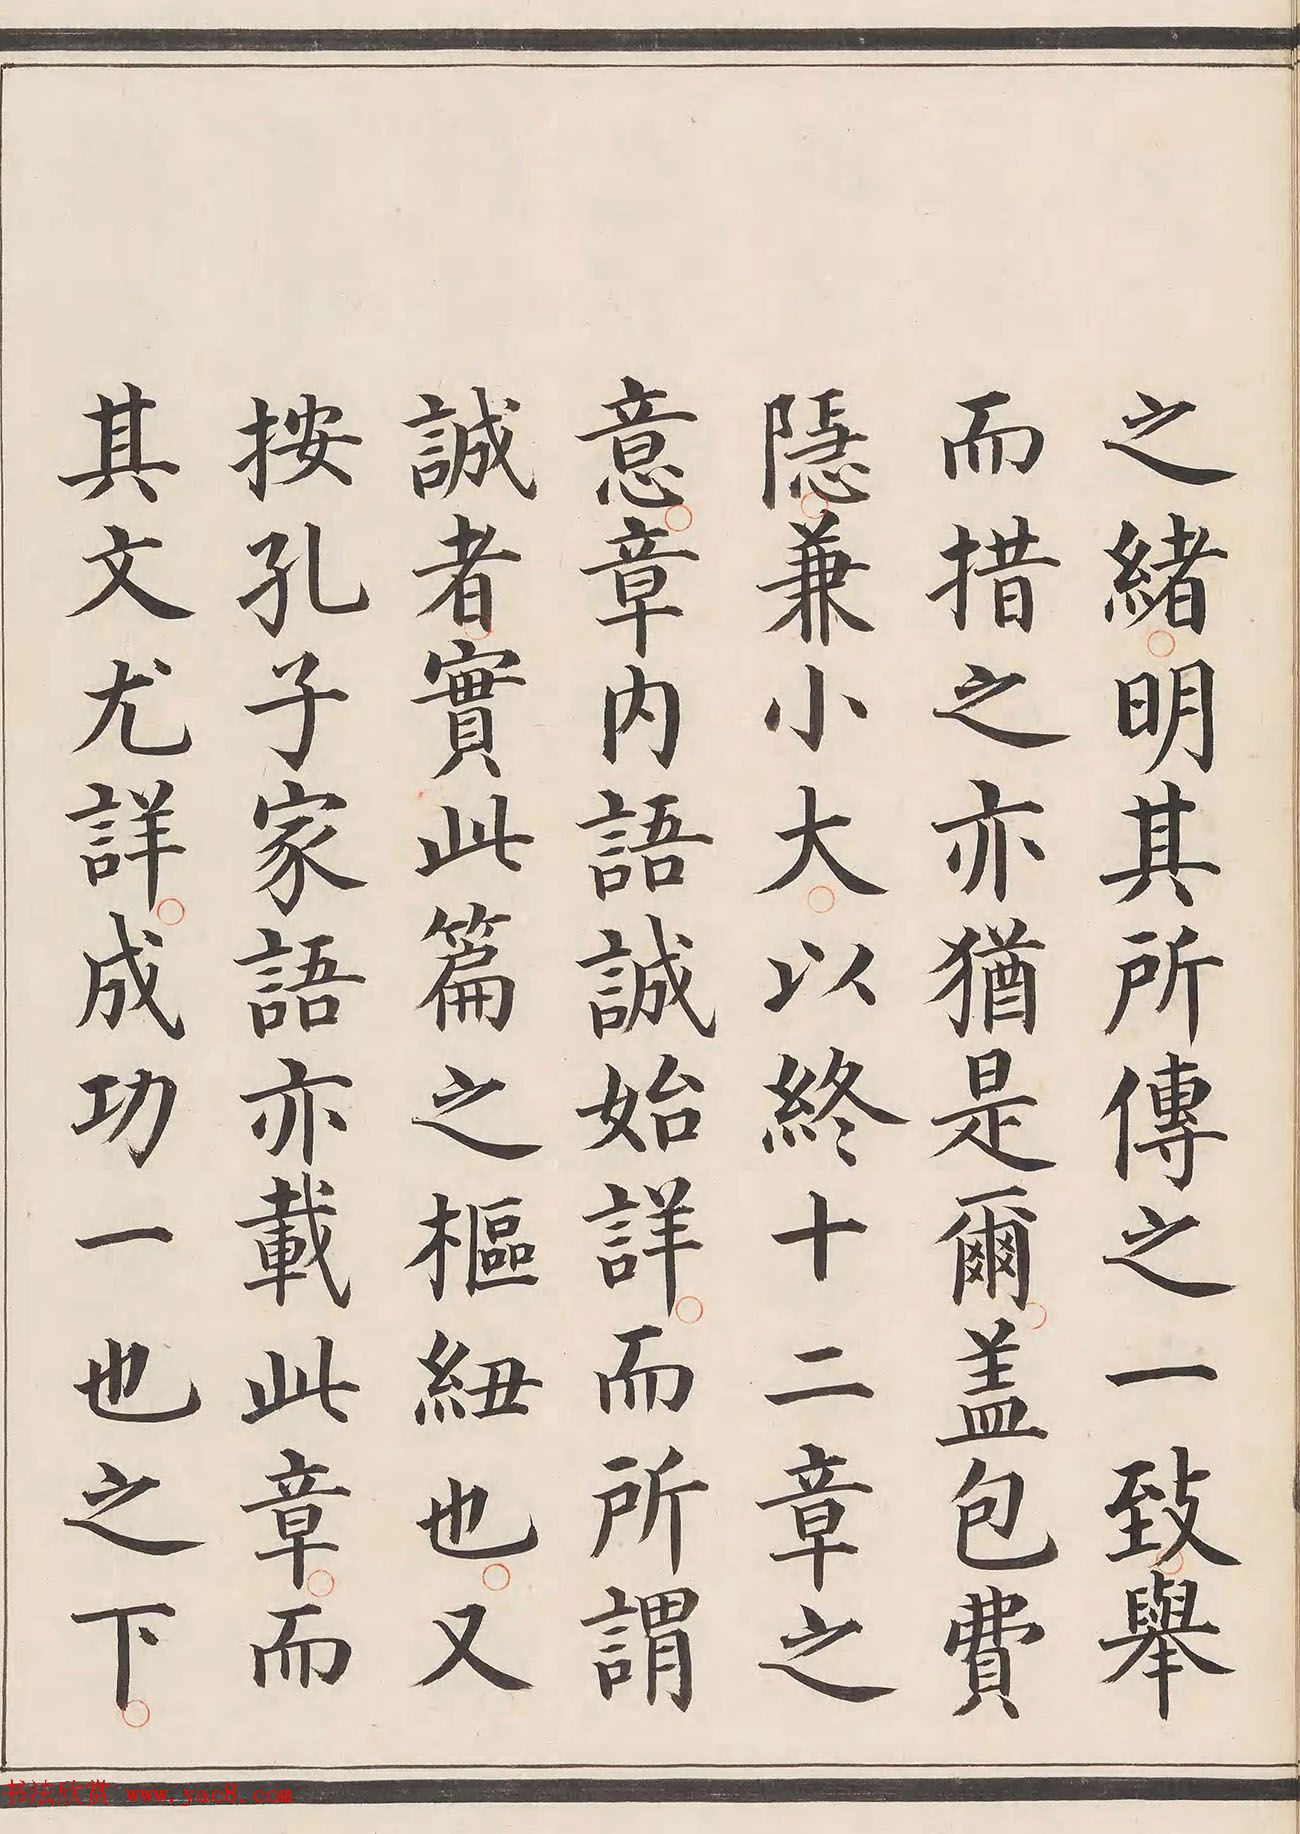 之緒明其所傳之一致舉
而措之亦猶是爾盖包費
隱兼小大以終十二章之
意章内語誠始詳而所謂
誠者實此篇之樞紐也又
按孔子家語亦載此章而
其文尤詳成功一也之下
书法欣赏 www.yac8.com